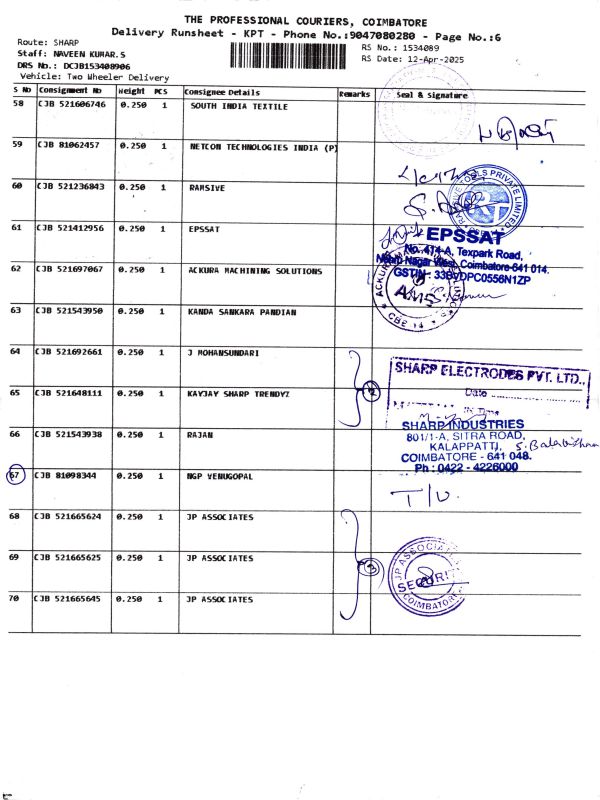 THE PROFESSIONAL COURIERS, COIMBATORE
Delivery Runsheet - KPT - Phone No.:9047080280 - Page No.:6
Route: SHARP
RS No.: 1534089
Staff: NAVEEN KUMAR.S
RS Date: 12-Apr-2025
DRS No.: DCJB153408906
Vehicle: Two Wheeler Delivery
S No Consignment No Weight PCS Consignee Details Remarks Seal & signature
58 CJB 521606746 0.250 1 SOUTH INDIA TEXTILE
59 CJB 81062457 0.250 1 NETCON TECHNOLOGIES INDIA (P)
60 CJB 521236843 0.250 1 RAMSIVE
61 CJB 521412956 0.250 1 EPSSAT
EPSSAT
No. 414-A, Texpark Road,
Nehru Nagar West, Coimbatore-641 014.
62 CJB 521697067 0.250 1 ACKURA MACHINING SOLUTIONS
GSTIN : 33BVDPC0556N1ZP
AMS
63 CJB 521543950 0.250 1 KANDA SANKARA PANDIAN
64 CJB 521692661 0.250 1 J MOHANSUNDARI
SHARP ELECTRODES PVT. LTD.,
Date
65 CJB 521648111 0.250 1 KAYJAY SHARP TRENDYZ
2
SHARP INDUSTRIES
66 CJB 521543938 0.250 1 RAJAN
801/1-A, SITRA ROAD,
KALAPPATTI,
COIMBATORE - 641 048.
Ph : 0422 - 4226000
67 CJB 81098344 0.250 1 NGP VENUGOPAL
68 CJB 521665624 0.250 1 JP ASSOCIATES
69 CJB 521665625 0.250 1 JP ASSOCIATES
3
JP ASSOCIATES
SECURITY
COIMBATORE
70 CJB 521665645 0.250 1 JP ASSOCIATES